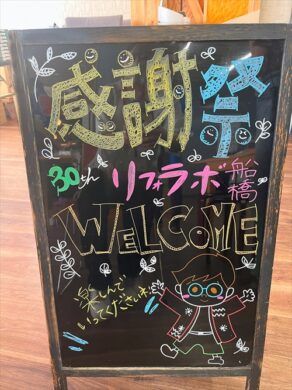 感謝祭
30th リフォラボ船橋
WELCOME
楽しんで
いってくださいネ